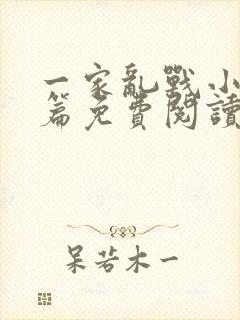 一家亂戰小
篇免費閱讀
呆若木一